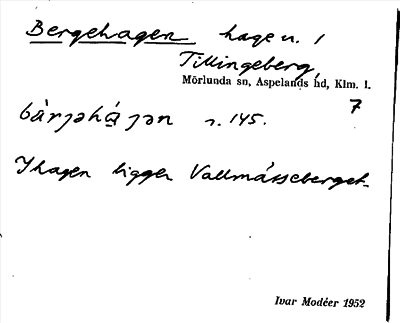 Bergehagen hage n. 1
Tillingeberg,
Mörlunda sn, Aspelands hd, Klm. l.
7
bàrjəhá̱jən n. 145.
I hagen ligger Vallmåsseberget.
Ivar Modéer 1952